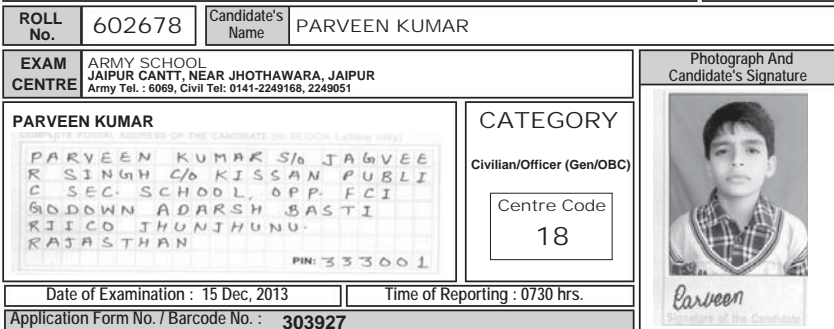 ROLL No. 602678 Candidate's Name PARVEEN KUMAR
EXAM CENTRE ARMY SCHOOL
JAIPUR CANTT, NEAR JHOTHAWARA, JAIPUR
Army Tel. : 6069, Civil Tel: 0141-2249168, 2249051
Photograph And
Candidate's Signature
PARVEEN KUMAR
COMPLETE POSTAL ADDRESS OF THE CANDIDATE (in BLOCK Letters only)
PARVEEN KUMAR S/o JAGVEE
R SINGH C/o KISSAN PUBLI
C SEC. SCHOOL, OPP. FCI
GODOWN ADARSH BASTI
RIICO JHUNJHUNU.
RAJASTHAN
PIN: 333001
CATEGORY
Civilian/Officer (Gen/OBC)
Centre Code
18
Parveen
Signature of the Candidate
Date of Examination : 15 Dec, 2013
Time of Reporting : 0730 hrs.
Application Form No. / Barcode No. : 303927